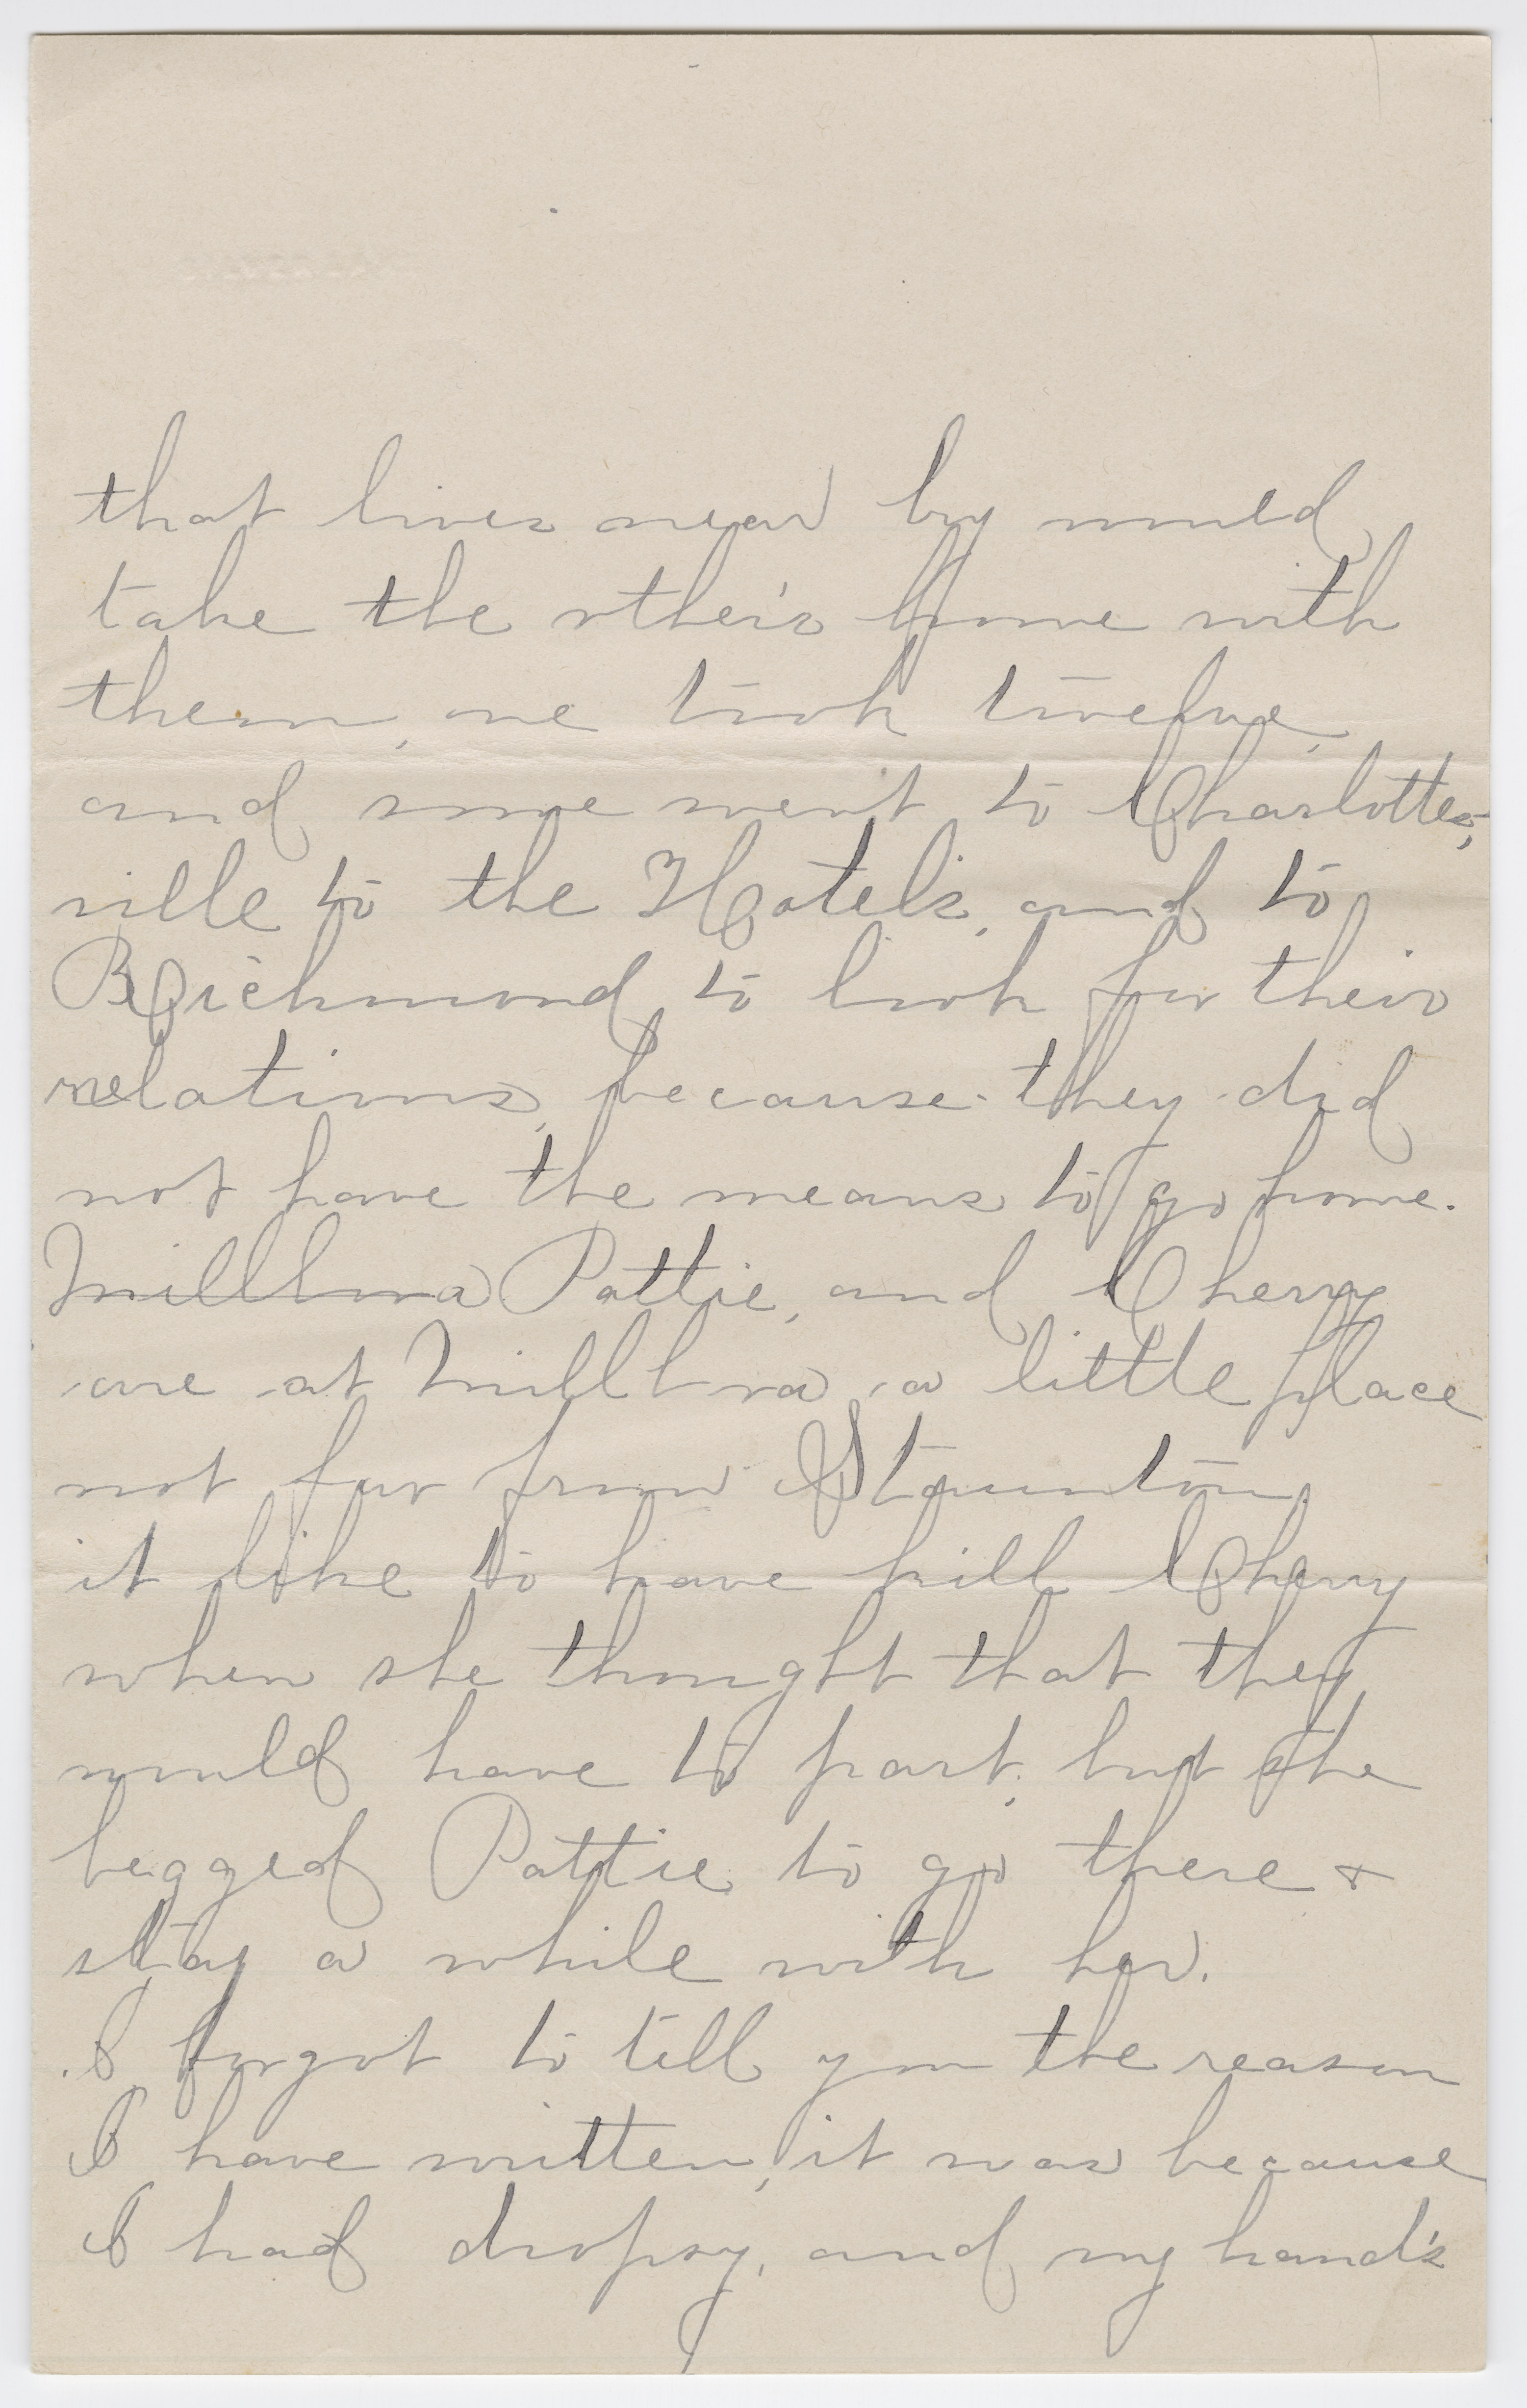 that lives near by would
take the other's home with
them, one took twelve,
and some went to Charlottes,
ville to the Hotel's, and to
Richmond to look for their
relations, because they did
not have the means to go home.
Millbora Pattie, and Cherry
are at Millbra a little place
not far from Staunton,
it like to have kill Cherry
when she thought that they
would have to part, but she
begged Pattie to go there &
stay a while with her.
I forgot to tell you the reason
I have written, it was because
I had dropsy, and my hand's